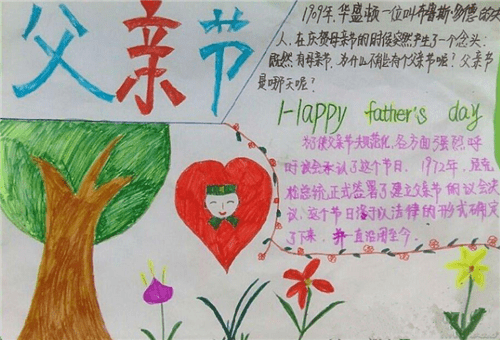 父亲节
1909年,华盛顿一位叫布鲁斯多德的女
人,在庆贺母亲节的时候突然产生了一个念头:
既然有母亲节,为什么不能有个父亲节呢?父亲节
是哪天呢?
Happy father's day
为使父亲节规范化,各方面强烈呼
时国会承认了这个节日。1972年,尼克
松总统正式签署了建立父亲节的议会决
议,这个节日终于以法律的形式确定
了下来,并一直沿用至今。